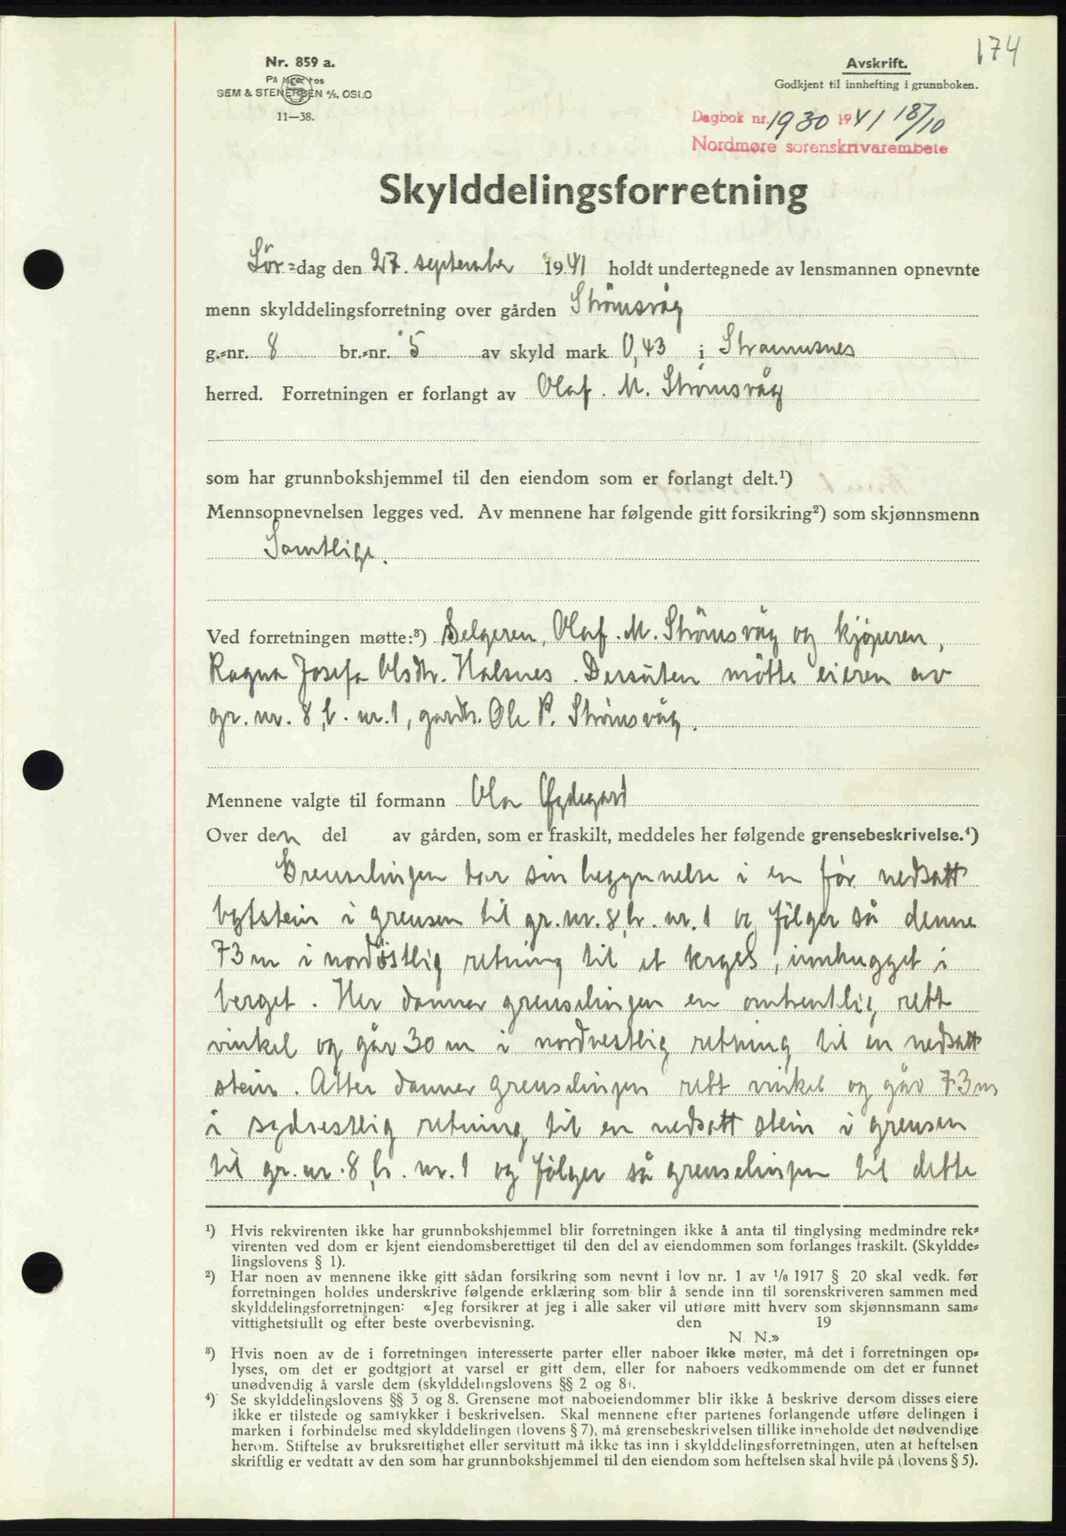 174
Nr. 859 a.
På lager hos
SEM & STENERSEN A/S, OSLO
11—38.
Avskrift.
Godkjent til innhefting i grunnboken.
Dagbok nr. 1930 1941 18/10
Nordmøre sorenskrivarembete
Skylddelingsforretning
Lör-dag den 27. september 1941 holdt undertegnede av lensmannen opnevnte
menn skylddelingsforretning over gården Strömsvåg
g.-nr. 8 br.-nr. 5 av skyld mark 0,43 i Straumsnes
herred. Forretningen er forlangt av Olaf. M. Strömsvåg
som har grunnbokshjemmel til den eiendom som er forlangt delt.¹)
Mennsopnevnelsen legges ved. Av mennene har følgende gitt forsikring²) som skjønnsmenn
Samtlige.
Ved forretningen møtte:³) Selgeren, Olaf. M. Strömsvåg og kjöperen,
Ragna Josefa Olsdtr. Halsnes. Dessuten mötte eieren av
gr. nr. 8, b. nr. 1, gardbr. Ole P. Strömsvåg.
Mennene valgte til formann Ola Øydegard
Over den del av gården, som er fraskilt, meddeles her følgende grensebeskrivelse.⁴)
Grenselinjen tar sin begynnelse i en før nedsatt
bytstein i grensen til gr. nr. 8, b. nr. 1 og følger så denne
73 m i nordöstlig retning til et kryss, innhugget i
berget. Her danner grenselinjen en omtrentlig rett
vinkel og går 30 m i nordvestlig retning til en nedsatt
stein. Atter danner grenselinjen rett vinkel og går 73 m
i sydvestlig retning til en nedsatt stein i grensen
til gr. nr. 8, b. nr. 1 og følger så grenselinjen til dette
¹) Hvis rekvirenten ikke har grunnbokshjemmel blir forretningen ikke å anta til tinglysing medmindre rek-
virenten ved dom er kjent eiendomsberettiget til den del av eiendommen som forlanges fraskilt. (Skyldde-
lingslovens § 1).
²) Har noen av mennene ikke gitt sådan forsikring som nevnt i lov nr. 1 av 1/6 1917 § 20 skal vedk. før
forretningen holdes underskrive følgende erklæring som blir å sende inn til sorenskriveren sammen med
skylddelingsforretningen: «Jeg forsikrer at jeg i alle saker vil utføre mitt hverv som skjønnsmann sam-
vittighetsfullt og efter beste overbevisning. den 19
N. N.»
³) Hvis noen av de i forretningen interesserte parter eller naboer ikke møter, må det i forretningen op-
lyses, om det er godtgjort at varsel er gitt dem, eller for naboers vedkommende om det er funnet
unødvendig å varsle dem (skylddelingslovens §§ 2 og 8).
⁴) Se skylddelingslovens §§ 3 og 8. Grensene mot naboeiendommer blir ikke å beskrive dersom disses eiere
ikke er tilstede og samtykker i beskrivelsen. Skal mennene efter partenes forlangende utføre delingen i
marken i forbindelse med skylddelingen (lovens § 7), må grensebeskrivelsen tillike inneholde det nødvendige
herom. Stiftelse av bruksrettighet eller servitutt må ikke tas inn i skylddelingsforretningen, uten at heftelsen
skriftlig er vedtatt av den som har grunnbokshjemmel til den eiendom som heftelsen skal hvile på (lovens § 5).